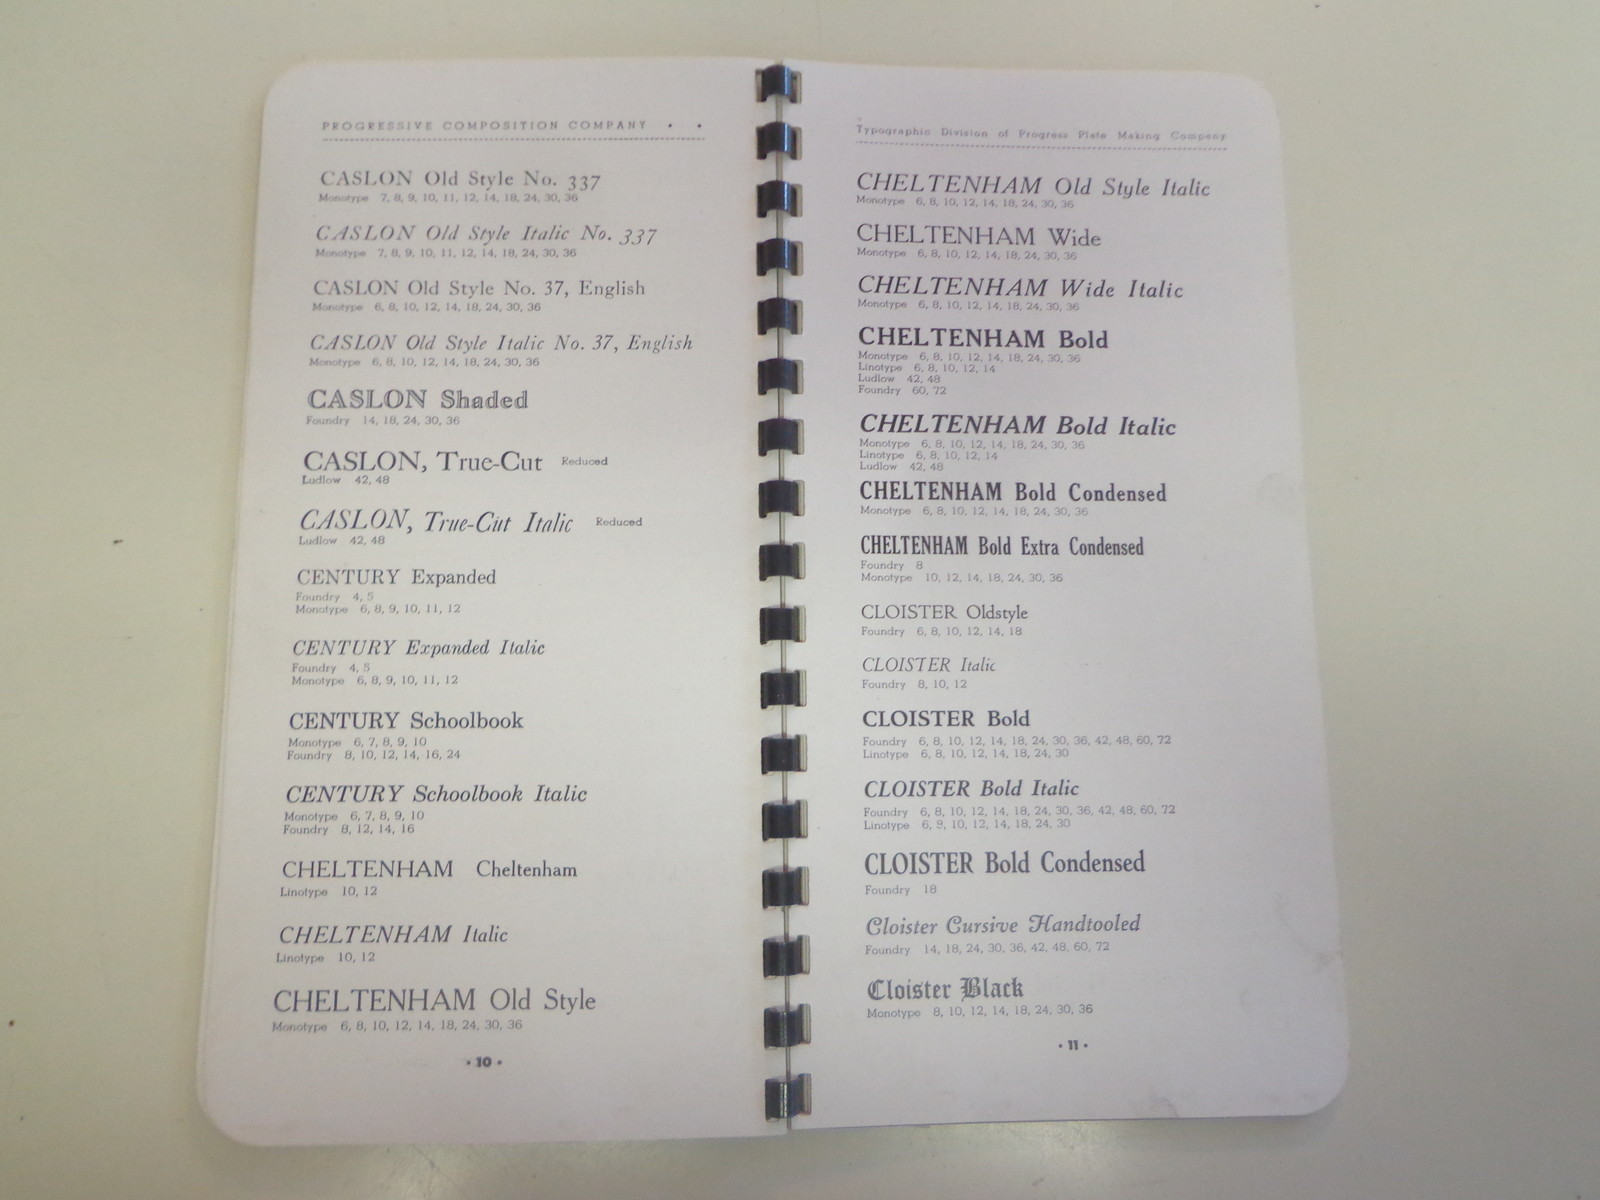 PROGRESSIVE COMPOSITION COMPANY • •
CASLON Old Style No. 337
Monotype 7, 8, 9, 10, 11, 12, 14, 18, 24, 30, 36
CASLON Old Style Italic No. 337
Monotype 7, 8, 9, 10, 11, 12, 14, 18, 24, 30, 36
CASLON Old Style No. 37, English
Monotype 6, 8, 10, 12, 14, 18, 24, 30, 36
CASLON Old Style Italic No. 37, English
Monotype 6, 8, 10, 12, 14, 18, 24, 30, 36
CASLON Shaded
Foundry 14, 18, 24, 30, 36
CASLON, True-Cut Reduced
Ludlow 42, 48
CASLON, True-Cut Italic Reduced
Ludlow 42, 48
CENTURY Expanded
Foundry 4, 5
Monotype 6, 8, 9, 10, 11, 12
CENTURY Expanded Italic
Foundry 4, 5
Monotype 6, 8, 9, 10, 11, 12
CENTURY Schoolbook
Monotype 6, 7, 8, 9, 10
Foundry 8, 10, 12, 14, 16, 24
CENTURY Schoolbook Italic
Monotype 6, 7, 8, 9, 10
Foundry 8, 12, 14, 16
CHELTENHAM Cheltenham
Linotype 10, 12
CHELTENHAM Italic
Linotype 10, 12
CHELTENHAM Old Style
Monotype 6, 8, 10, 12, 14, 18, 24, 30, 36
• 10 •
Typographic Division of Progress Plate Making Company
CHELTENHAM Old Style Italic
Monotype 6, 8, 10, 12, 14, 18, 24, 30, 36
CHELTENHAM Wide
Monotype 6, 8, 10, 12, 14, 18, 24, 30, 36
CHELTENHAM Wide Italic
Monotype 6, 8, 10, 12, 14, 18, 24, 30, 36
CHELTENHAM Bold
Monotype 6, 8, 10, 12, 14, 18, 24, 30, 36
Linotype 6, 8, 10, 12, 14
Ludlow 42, 48
Foundry 60, 72
CHELTENHAM Bold Italic
Monotype 6, 8, 10, 12, 14, 18, 24, 30, 36
Linotype 6, 8, 10, 12, 14
Ludlow 42, 48
CHELTENHAM Bold Condensed
Monotype 6, 8, 10, 12, 14, 18, 24, 30, 36
CHELTENHAM Bold Extra Condensed
Foundry 8
Monotype 10, 12, 14, 18, 24, 30, 36
CLOISTER Oldstyle
Foundry 6, 8, 10, 12, 14, 18
CLOISTER Italic
Foundry 8, 10, 12
CLOISTER Bold
Foundry 6, 8, 10, 12, 14, 18, 24, 30, 36, 42, 48, 60, 72
Linotype 6, 8, 10, 12, 14, 18, 24, 30
CLOISTER Bold Italic
Foundry 6, 8, 10, 12, 14, 18, 24, 30, 36, 42, 48, 60, 72
Linotype 6, 8, 10, 12, 14, 18, 24, 30
CLOISTER Bold Condensed
Foundry 18
Cloister Cursive Handtooled
Foundry 14, 18, 24, 30, 36, 42, 48, 60, 72
Cloister Black
Monotype 8, 10, 12, 14, 18, 24, 30, 36
• 11 •